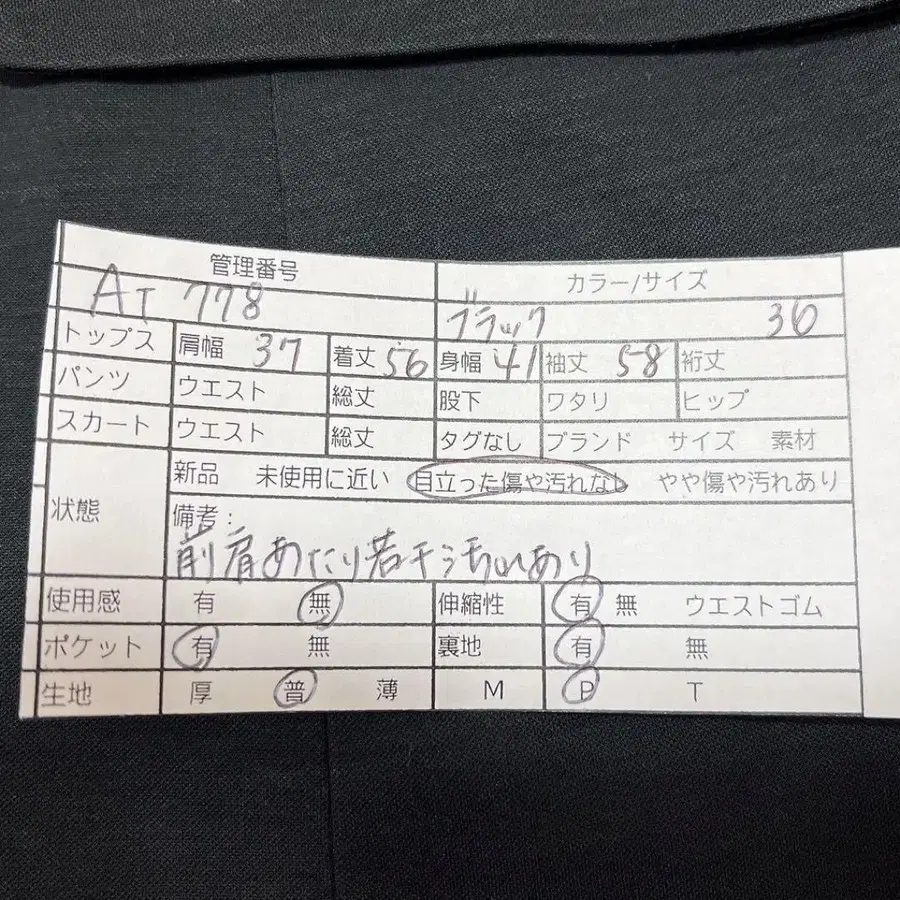 管理番号 カラー/サイズ
AT 778 ブラック 36
トップス 肩幅 37 着丈 56 身幅 41 袖丈 58 裄丈
パンツ ウエスト 総丈 股下 ワタリ ヒップ
スカート ウエスト 総丈 タグなし ブランド サイズ 素材
状態 新品 未使用に近い 目立った傷や汚れなし やや傷や汚れあり
備考:
前肩あたり若干汚れあり
使用感 有 無 伸縮性 有 無 ウエストゴム
ポケット 有 無 裏地 有 無
生地 厚 普 薄 M P T